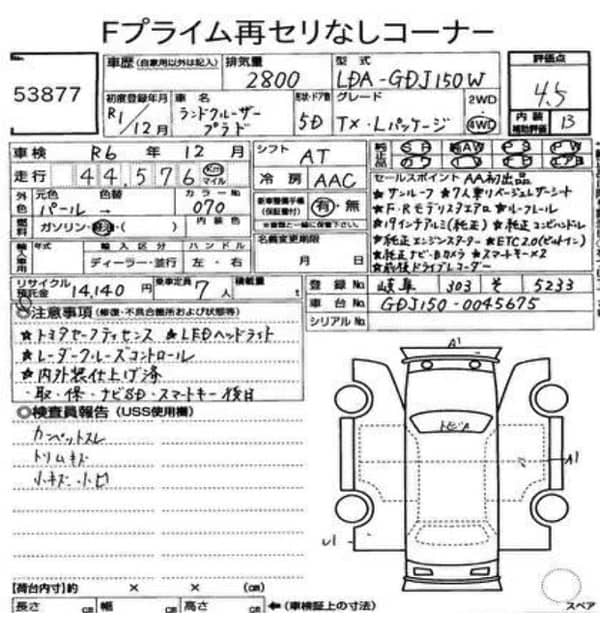 Fプライム再セリなしコーナー
53877
車歴 (自家用以外は記入)
排気量
2800
型式
LDA-GDJ150W
評価点
4.5
内装
補助評価
B
初度登録年月
R1/12月
車名
ランドクルーザー
プラド
形状・ドア数
5D
グレード
TX・Lパッケージ
2WD
4WD
車検 R6 年 12 月
シフト AT
純正品
SR AW PS PW
走行 44,576 Km マイル
冷房 AAC
セールスポイント AA初出品
★サンルーフ ★7人乗りベージュレザーシート
★F・Rモデリスタエアロ ★ルーフレール
★19インチアルミ(純正) ★純正コンビハンドル
★純正エンジンスターター ★ETC2.0(ビルトイン)
★純正ナビ・Bカメラ ★スマートキー×2
★前後ドライブレコーダー
外色
元色 色替 カラーNo
パール → 070
燃料
ガソリン・軽油・( )
内装色
新車整備手帳
(保証書付)
有・無
※書類と一緒に保管下さい。
輸入車用
年式 輸入区分 ハンドル
ディーラー・並行 左・右
名義変更期限
月 日
リサイクル
預託金
14,140 円
乗車定員
7 人
積載量
t
登録No 岐阜 303 そ 5233
車台No GDJ150-0045675
シリアルNo
注意事項 (修復・不具合箇所および状態等)
★トヨタセーフティセンス ★LEDヘッドライト
★レーダークルーズコントロール
★内外装仕上げ済
・取・保・ナビSD・スマートキー後日
検査員報告 (USS使用欄)
カーペットスレ
トリムキズ
小キズ・小凹
A1
A1
【荷台内寸】約 × × (cm)
長さ cm 幅 cm 高さ cm ←(車検証上の寸法)
スペア